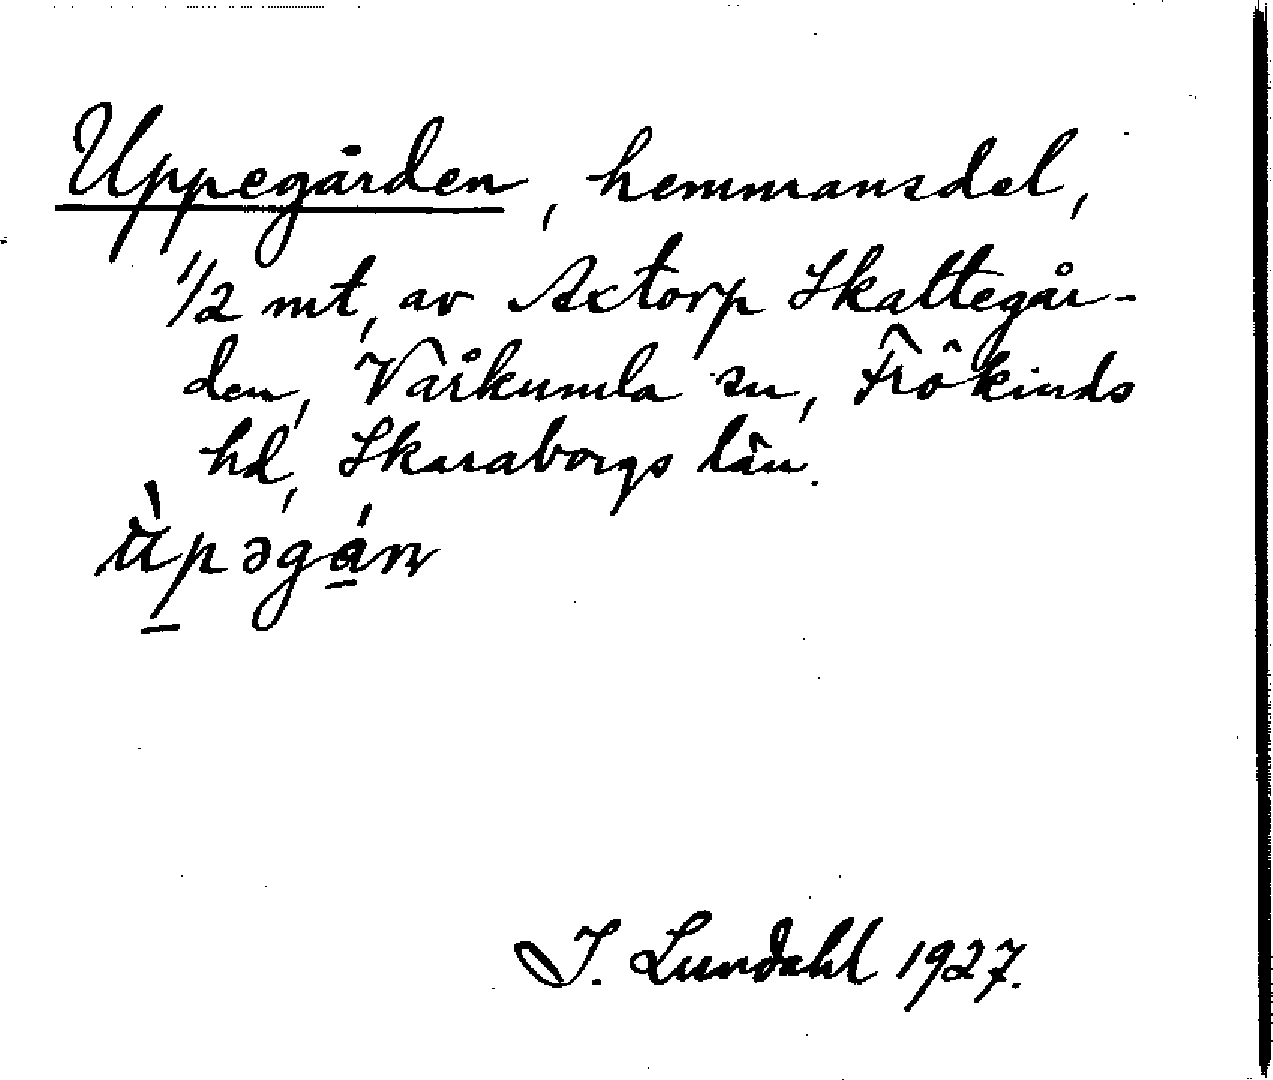 Uppegården, hemmansdel,
1/2 mt, av Axtorp Skattegår-
den, Vårkumla sn, Frökinds
hd, Skaraborgs län.
J. Lundahl 1927.